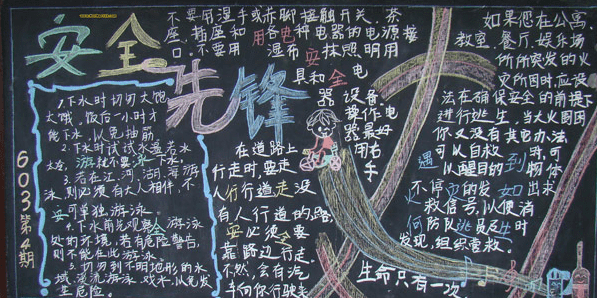 安全
先锋
603第4期
1.下水时切勿太饱
太饿。饭后一小时才
能下水,以免抽筋
2.下水时试试水温若水
太冷,游就不要泳下水;
3.若在江、河、湖、海游
泳,则必须有大人相伴,不
安可单独游泳。
4.下水前先观察全游泳
处的环境,若有危险警告,
则不能在此游泳。
5.切勿到不明地形的水
域、漂流游泳、戏水,以免发
生危险。
不要用湿手或赤脚接触开关、茶
座、插座和用各电种电器的电源接
口。不要用湿布安抹照明用
具和全电
器设备。
操作电
器最好
用右
手
在道路上
行走时,要走
人行行道走没
有人行道的路,
安必须要全
靠路边行走。
不然,会有汽
车向你行驶来
如果您在公寓、
教室、餐厅、娱乐场
所所突发的火
灾所困时,应设
法在确保安全的前提下
进行逃生,当大火围困
你又没有其它办法
可以自救时,可
遇以醒目的到物体
不停灾的发如出求
救信号,以便消
何防队逃员生时
发现,组织营救。
生命只有一次